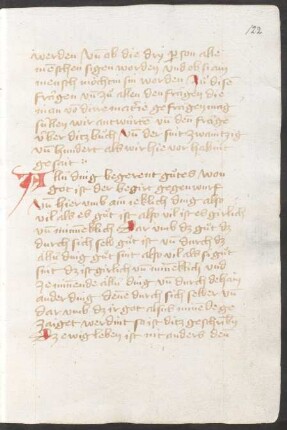 122
werden Vn̄ ob die dry pson alle
menschen sigen worden und ob si ain
mensch möchtin sin werden An dise
fragen vn̄ zů allen den fragen die
man vō dire materie gefragen mag
sullen wir antwurten vn̄ den frage
v̈ber ditz bůch Vn̄ der sint zwaintzig
vn̄ hundert als wir hie vor habint
gesait
Allu ding begerent gůtes Won
got ist der begirt gegenwurf
Vn̄ hier vmb ain ieklich ding also
vil als es gůt ist also vil ist es girlich
vn̄ minneklich Dar vmb dz gůt dz
durch sich selb gůt ist vn̄ durch dz
allu ding gůt sint also vil als si gůt
sint dz ist girlich vn̄ mineklich vnd
ze minnende allu ding vn̄ durch dehain
ander ding denne durch sich selber vn̄
dar vmb dz ir got also minnekliche
zaiget werdint so ist ditz geschribn̄
Dz ewig leben ist nit anders den